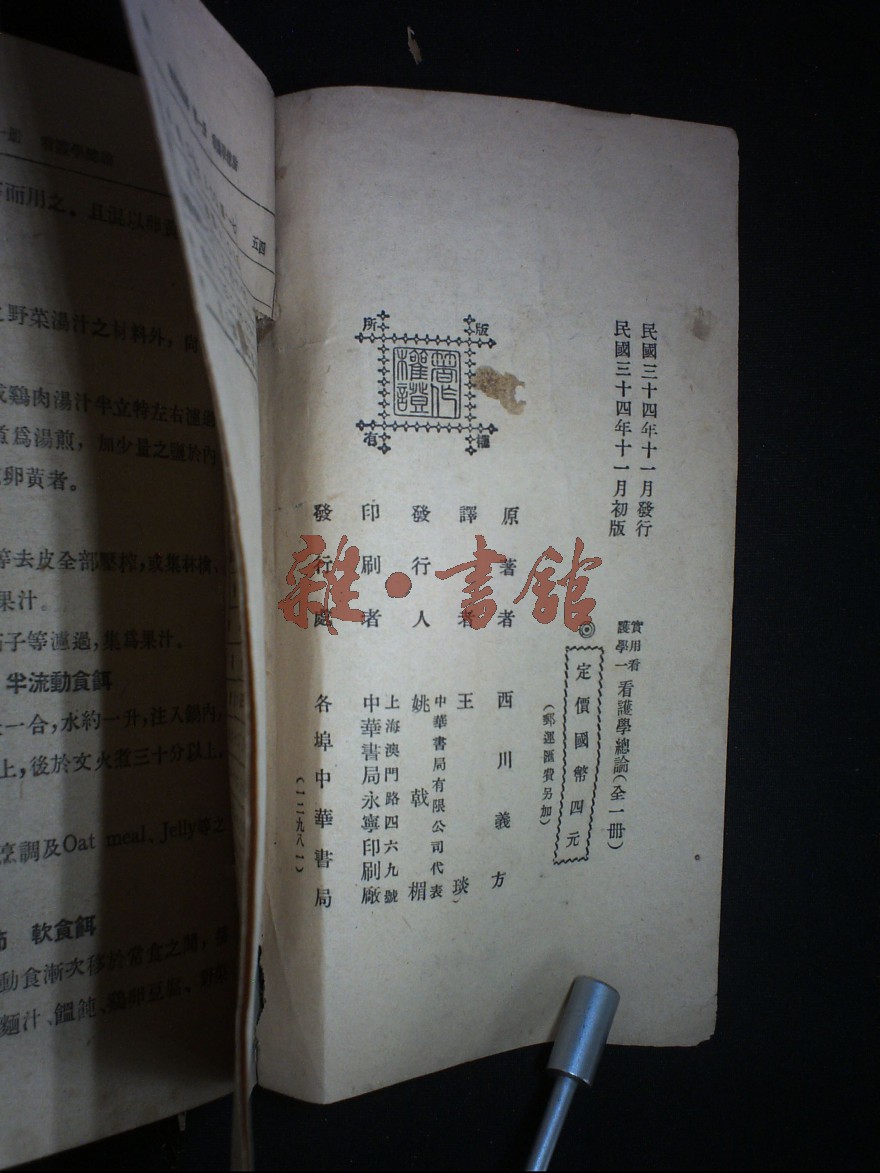 民國三十四年十一月發行
民國三十四年十一月初版
實用看
護學一
看護學總論(全一冊)
定價國幣四元
(郵運匯費另加)
原著者 西川義方
譯者 王琰
發行人 姚戟楣
中華書局有限公司代表
印刷者 中華書局永寧印刷廠
上海澳門路四六九號
發行處 各埠中華書局
(一二九八一)
版權所有
著作權證
雜·書館
五四
野菜湯汁之材料外,
鷄肉湯汁半立特左右濾過
煮爲湯煎,加少量之鹽於內
卵黃者。
等去皮全部壓榨,或集林檎、
果汁。
子等濾過,集爲果汁。
半流動食餌
一合,水約一升,注入鍋內,
上,後於文火煮三十分以上,
烹調及Oat meal、Jelly等之
軟食餌
動食漸次移於常食之間,
麵汁、饂飩、鷄卵豆腐、野菜